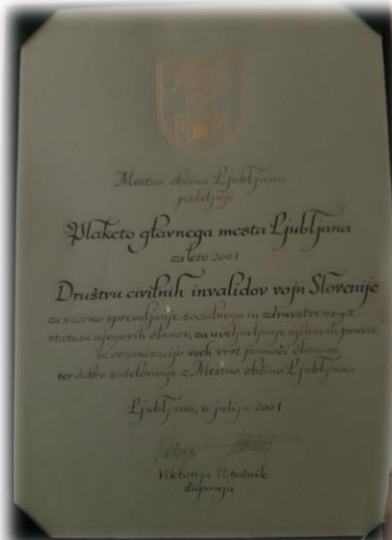 Mestna občina Ljubljana
podeljuje
Plaketo glavnega mesta Ljubljana
za leto 2001
Društvu civilnih invalidov vojn Slovenije
za vzorno spremljanje socialnega in zdravstvenega
statusa njegovih članov, za uveljavljanje njihovih pravic
in organizacijo vseh vrst pomoči članom
ter dobro sodelovanje z Mestno občino Ljubljana
Ljubljana, julija 2001
Viktorija Potočnik
županja